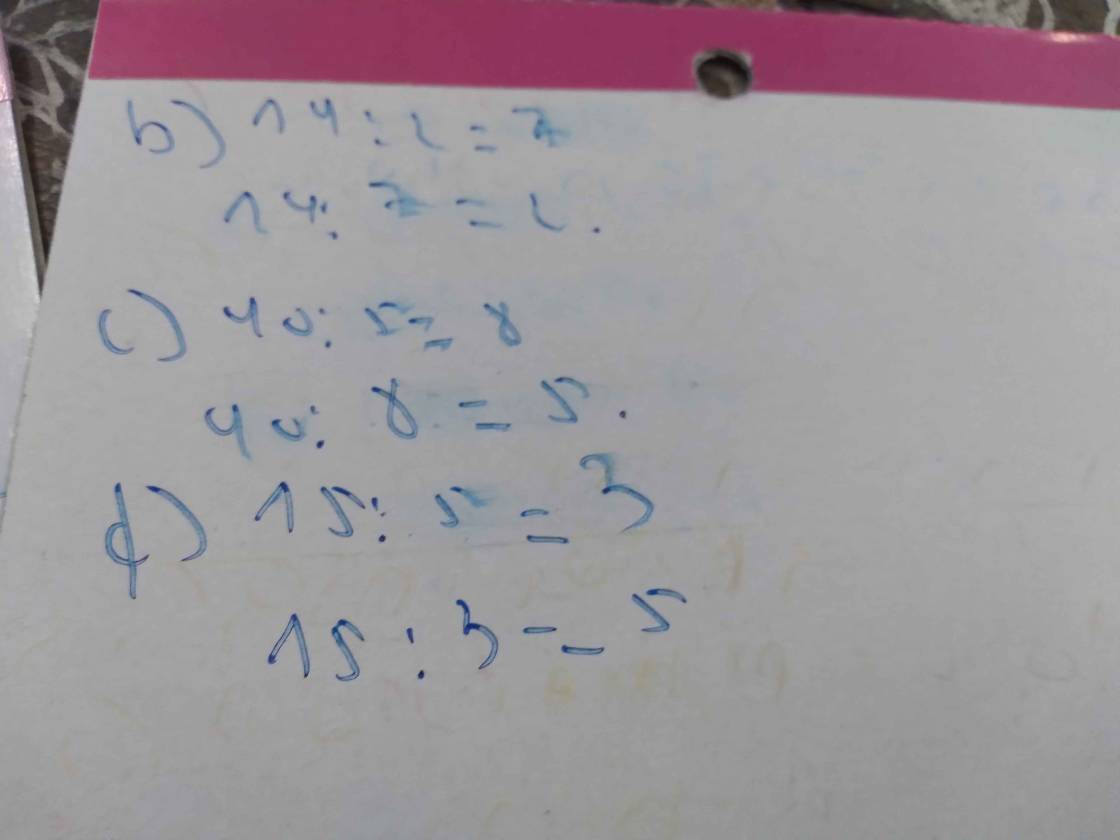 b) 14 : 2 = 7
14 : 7 = 2.
c) 40 : 5 = 8
40 : 8 = 5.
d) 15 : 5 = 3
15 : 3 = 5